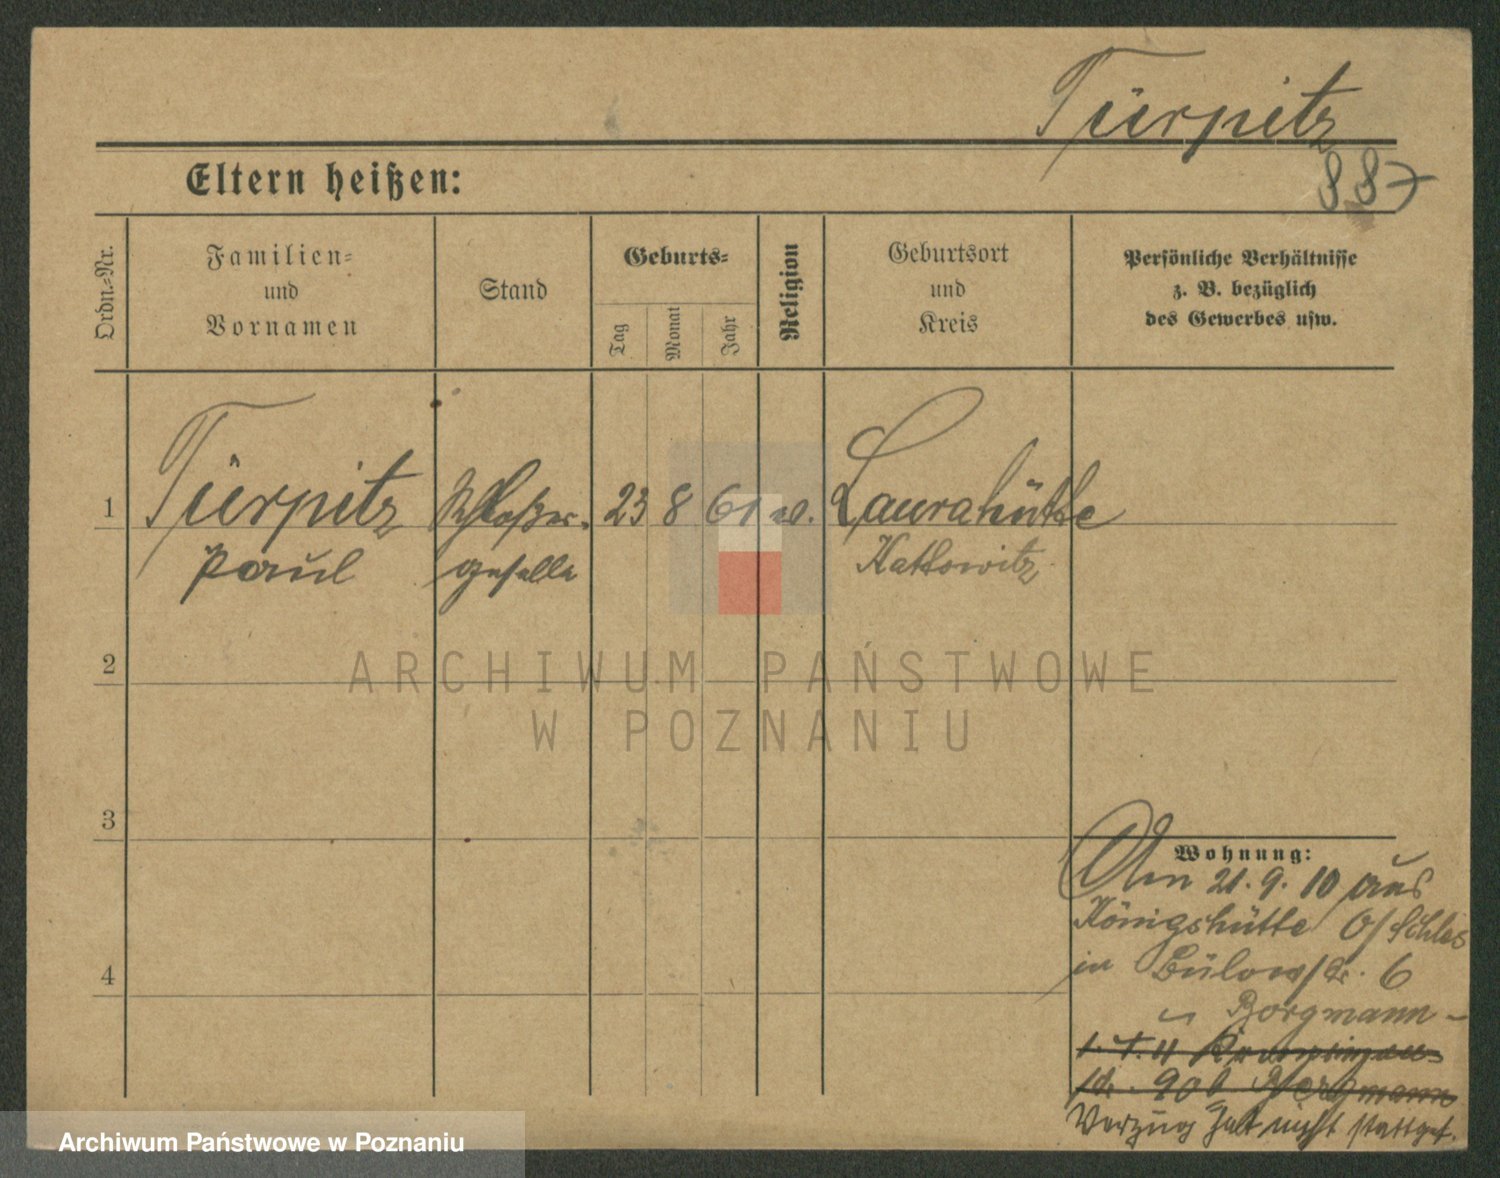 Türpitz
887
Eltern heißen:
Ordn.-Nr.
Familien-
und
Vornamen
Stand
Geburts-
Tag
Monat
Jahr
Religion
Geburtsort
und
Kreis
Persönliche Verhältnisse
z. B. bezüglich
des Gewerbes usw.
1
Türpitz
Paul
Schlosser-
geselle
23
8
61
Laurahütte
Kattowitz
2
3
4
ARCHIWUM PAŃSTWOWE
W POZNANIU
Wohnung:
Am 21. 9. 10 aus
Königshütte O/Schles
in Bülowstr. 6
Borgmann
1. 4. 11
str. Borgmann
Verzug hat nicht stattgef.
Archiwum Państwowe w Poznaniu